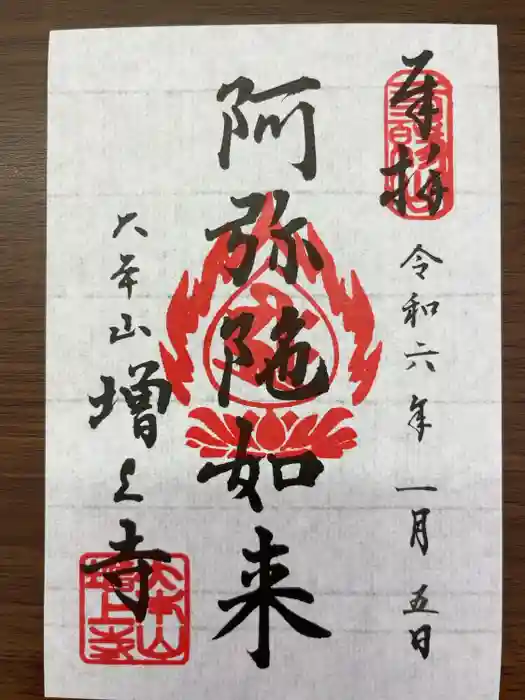 奉拝
令和六年 一月 五日
阿弥陀如来
大本山 増上寺
大本山
増上寺